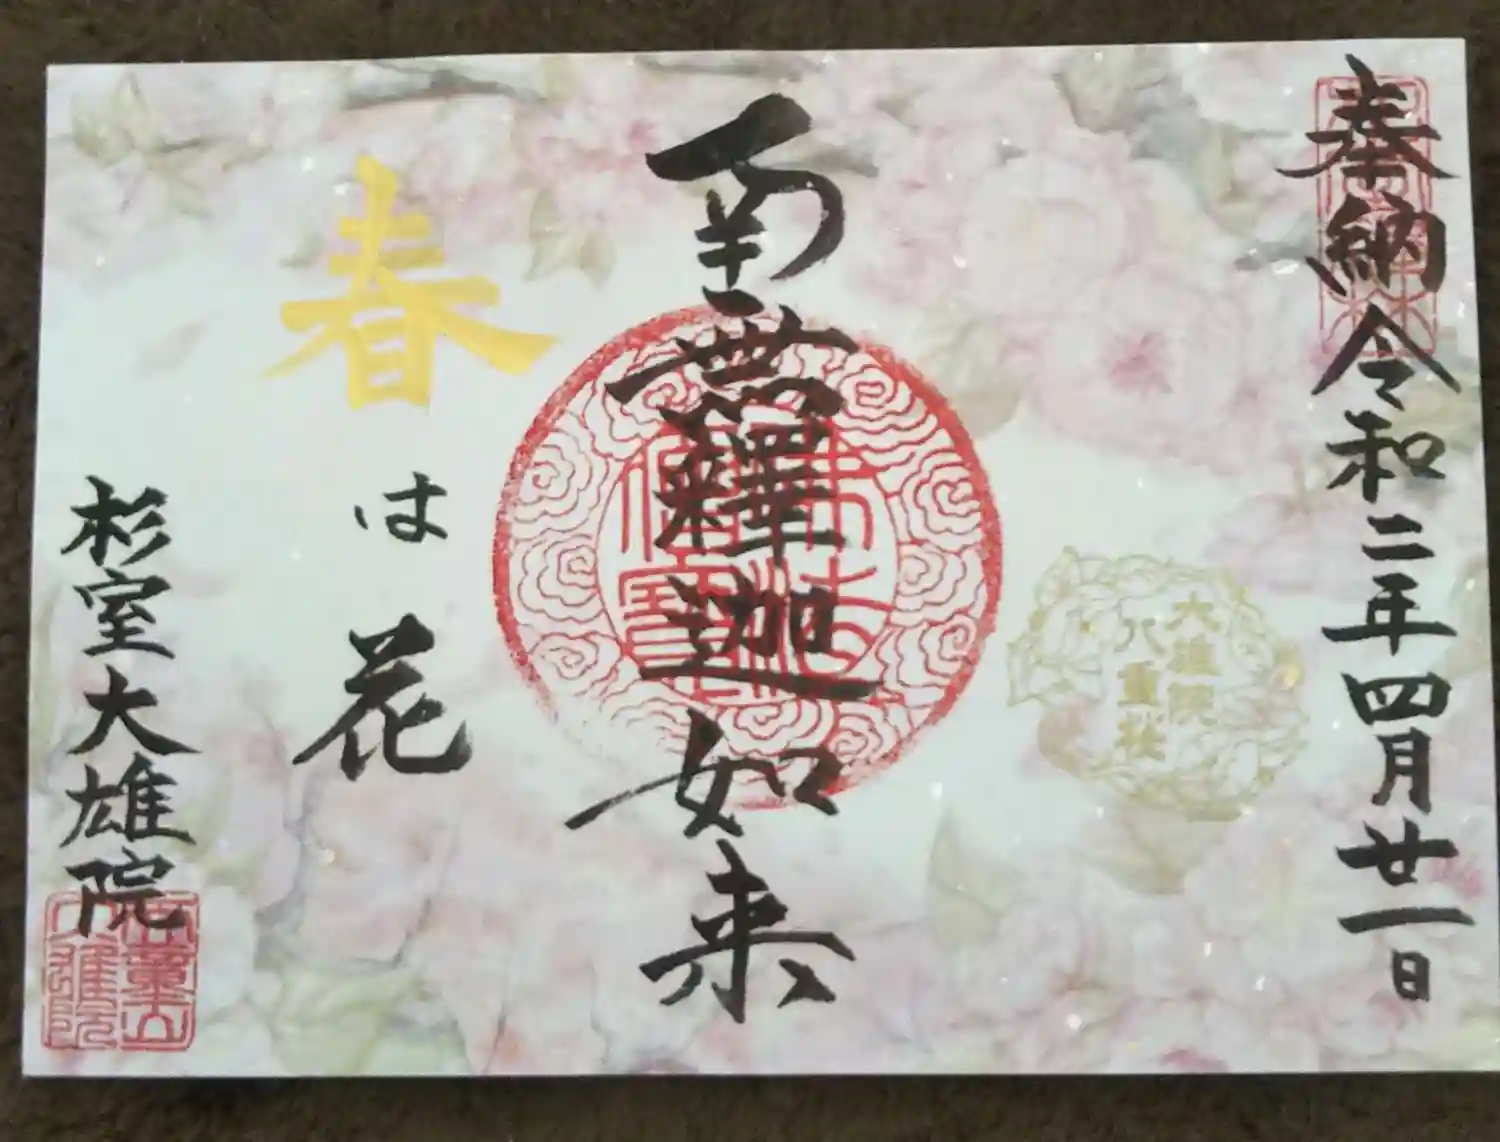 奉納 令和二年四月廿一日
大雄院
八重桜
南無釋迦如来
佛法僧寳
春は花
杉室大雄院